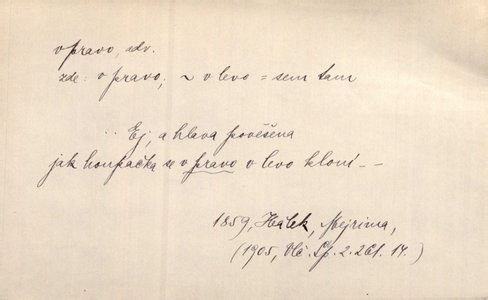 vpravo, adv.
zde: vpravo, ~ v levo = sem tam
.. Ej, a hlava pověšena
jak houpačka se vpravo v levo kloní – –
1859, Hálek, Mejrima,
(1905, Vlč. Sp. 2. 14.)